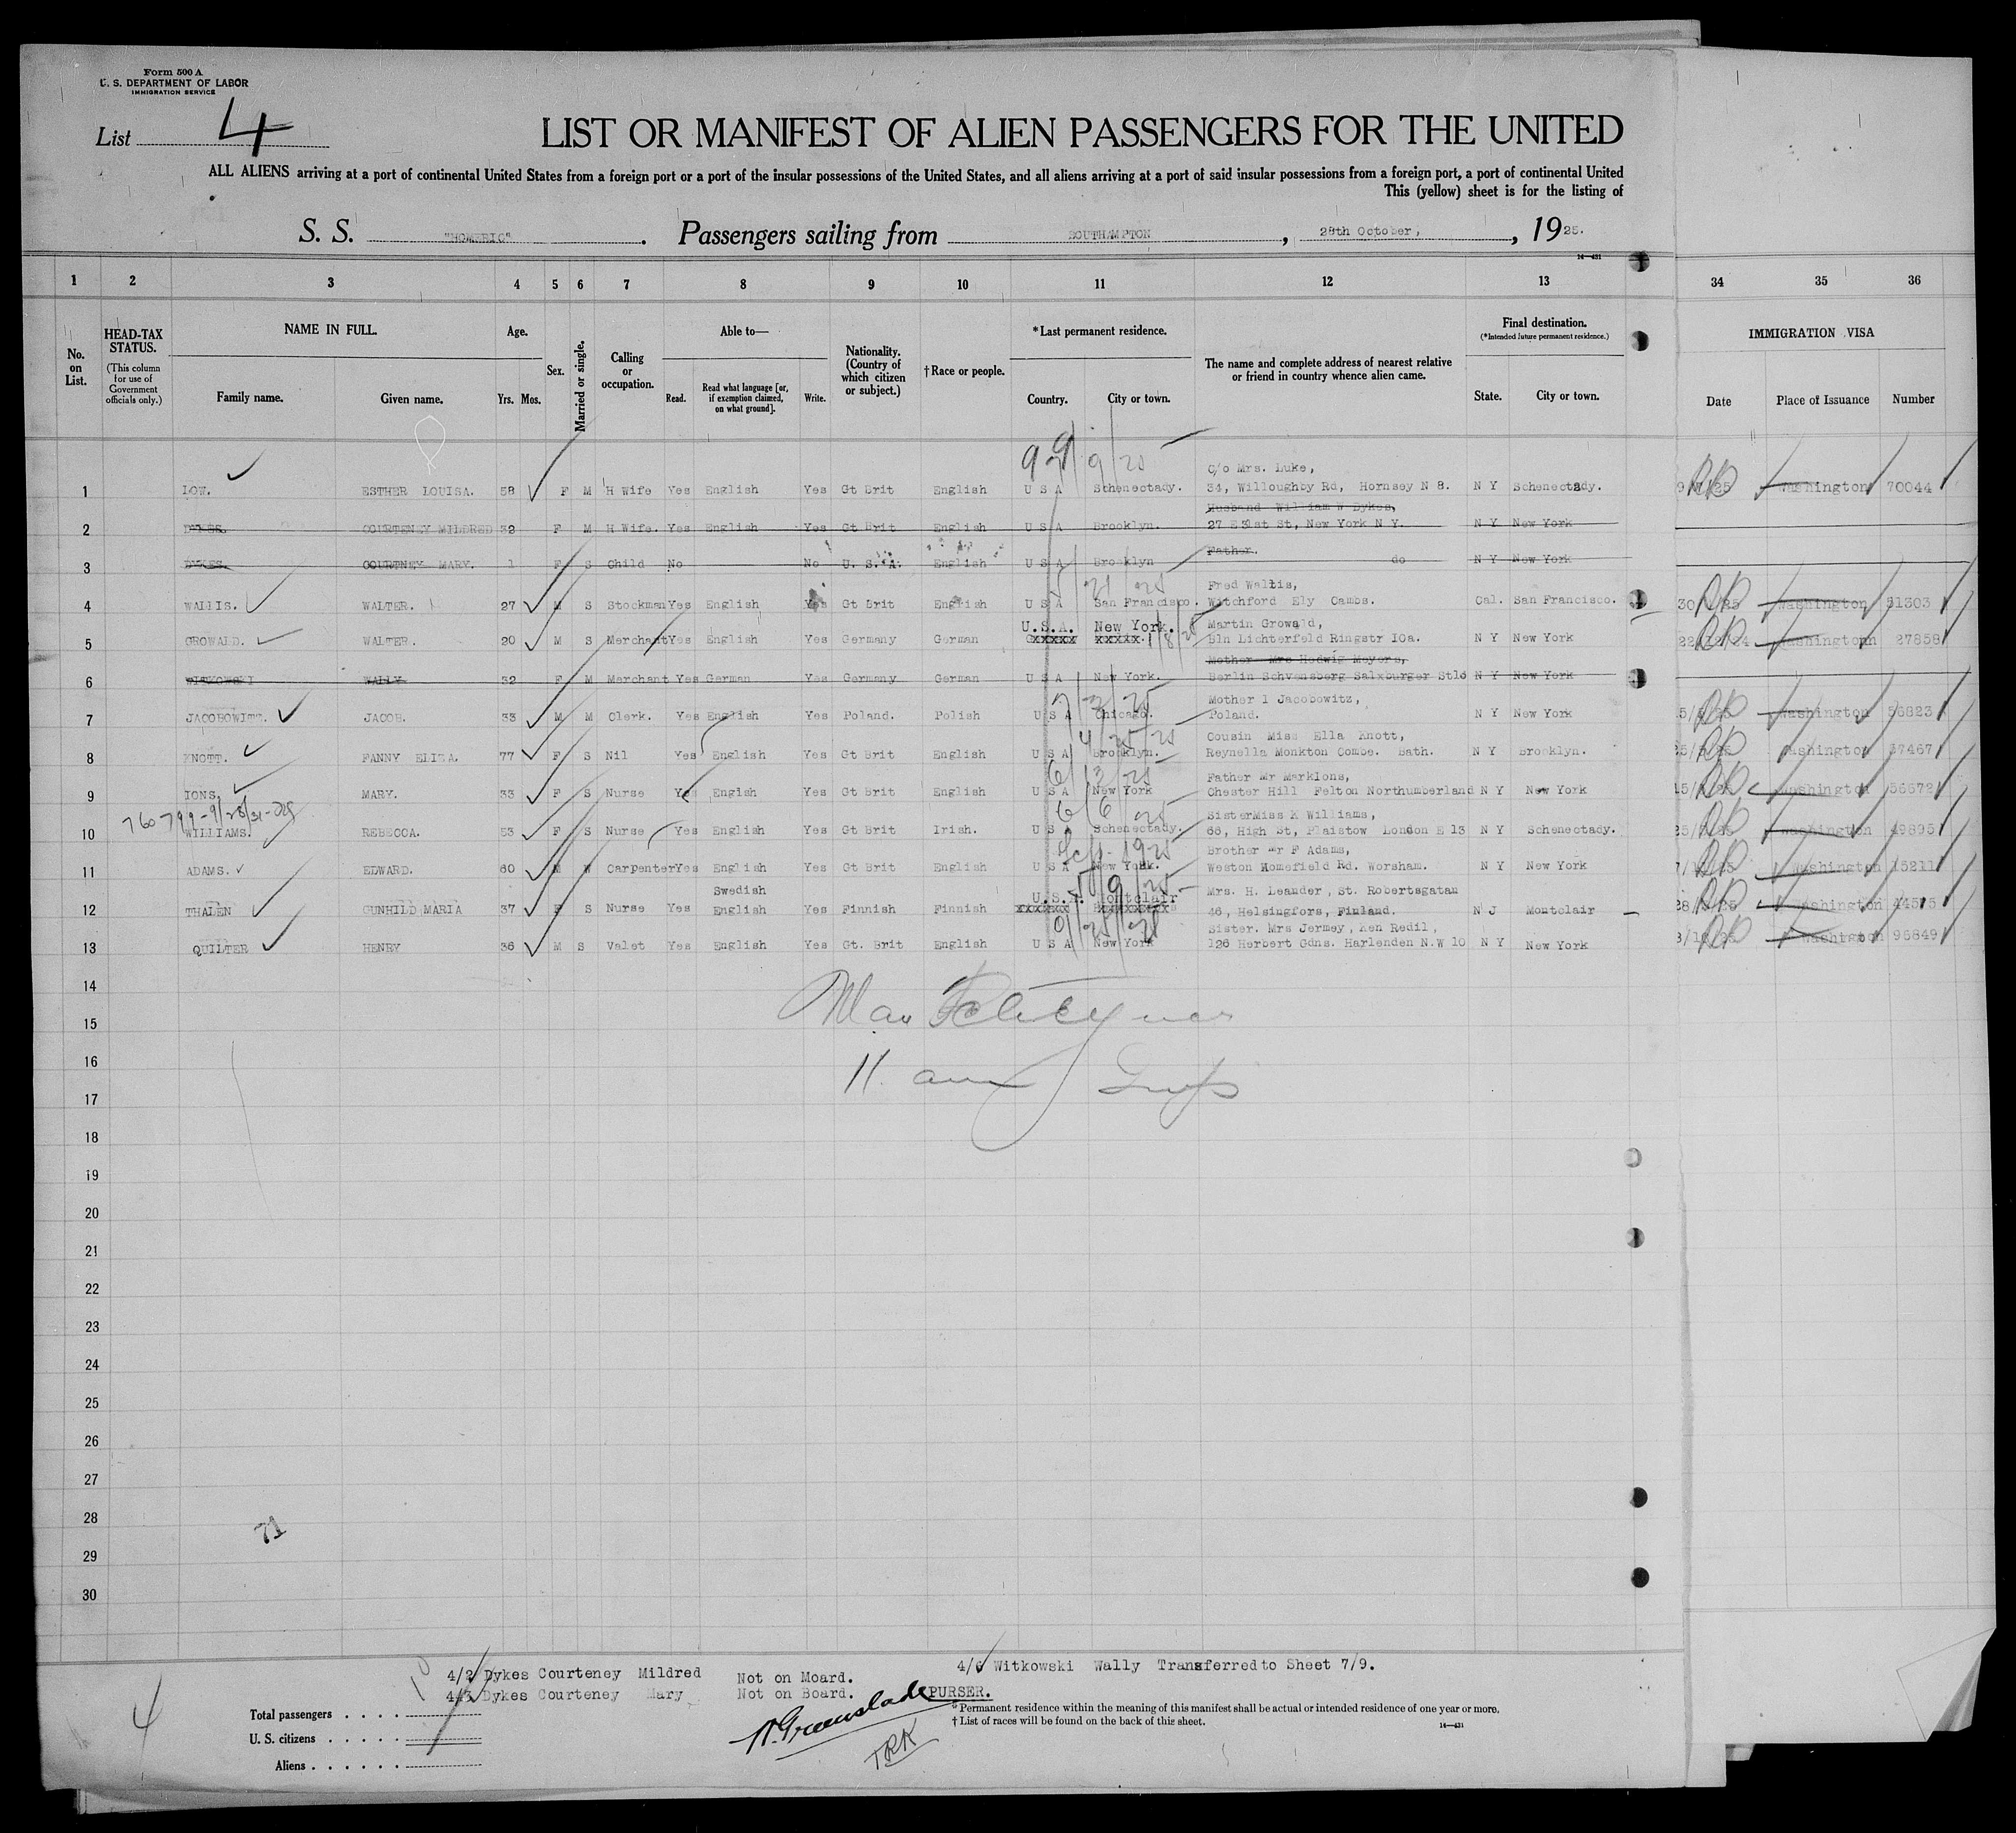 Form 500 A
U. S. DEPARTMENT OF LABOR
IMMIGRATION SERVICE
List 4
LIST OR MANIFEST OF ALIEN PASSENGERS FOR THE UNITED
ALL ALIENS arriving at a port of continental United States from a foreign port or a port of the insular possessions of the United States, and all aliens arriving at a port of said insular possessions from a foreign port, a port of continental United
This (yellow) sheet is for the listing of
S. S. "HOMERIC". Passengers sailing from SOUTHAMPTON, 28th October, , 1925.
14—431
1 2 3 4 5 6 7 8 9 10 11 12 13 34 35 36
No. on List.
HEAD-TAX STATUS.
(This column for use of Government officials only.)
NAME IN FULL.
Family name. Given name.
Age.
Yrs. Mos.
Sex.
Married or single.
Calling or occupation.
Able to—
Read. Read what language [or, if exemption claimed, on what ground]. Write.
Nationality. (Country of which citizen or subject.)
† Race or people.
*Last permanent residence.
Country. City or town.
The name and complete address of nearest relative or friend in country whence alien came.
Final destination.
(*Intended future permanent residence.)
State. City or town.
IMMIGRATION VISA
Date Place of Issuance Number
c/o Mrs. Luke,
1 LOW. ESTHER LOUISA. 58 F M H Wife Yes English Yes Gt Brit English U S A Schenectady. 34, Willoughby Rd, Hornsey N 8. N Y Schenectady. Washington 70044
Husband William W Dykes,
2 DYKES. COURTENEY MILDRED 32 F M H Wife. Yes English Yes Gt Brit English U S A Brooklyn. 27 E 31st St, New York N Y. N Y New York
Father.
3 DYKES. COURTNEY MARY. 1 F S Child No No U. S. A. English U S A Brooklyn do N Y New York
Fred Wallis,
4 WALLIS. WALTER. 27 M S Stockman Yes English Yes Gt Brit English U S A San Francisco. Witchford Ely Cambs. Cal. San Francisco. Washington 51303
U.S.A. New York. Martin Growald,
5 GROWALD. WALTER. 20 M S Merchant Yes English Yes Germany German Bln Lichterfeld Ringstr 10a. N Y New York Washington 27858
Mother Mrs Hedwig Meyers,
6 WITKOWSKI WALLY 32 F M Merchant Yes German Yes Germany German U S A New York. Berlin Schvensberg Salxburger Stld N Y New York
Mother I Jacobowitz,
7 JACOBOWITZ. JACOB. 33 M M Clerk. Yes English Yes Poland. Polish U S A Chicago. Poland. N Y New York Washington 56823
Cousin Miss Ella Knott,
8 KNOTT. FANNY ELIZA. 77 F S Nil Yes English Yes Gt Brit English U S A Brooklyn. Reynella Monkton Combe. Bath. N Y Brooklyn. Washington 37467
Father Mr Marklons,
9 IONS. MARY. 33 F S Nurse Yes Engish Yes Gt Brit English U S A New York Chester Hill Felton Northumberland N Y New York Washington 56672
760-799-9/28/31
SisterMiss K Williams,
10 WILLIAMS. REBECCA. 53 F S Nurse Yes English Yes Gt Brit Irish. U S A Schenectady. 66, High St, Plaistow London E 13 N Y Schenectady. Washington 49895
Brother Mr F Adams,
11 ADAMS. EDWARD. 60 M W Carpenter Yes English Yes Gt Brit English U S A New York. Weston Homefield Rd. Worsham. N Y New York Washington 15211
Swedish U.S.A. Montclair Mrs. H. Leander, St. Robertsgatan
12 THALEN GUNHILD MARIA 37 F S Nurse Yes English Yes Finnish Finnish 46, Helsingfors, Finland. N J Montclair Washington
Sister. Mrs Jermey, Ken Redil,
13 QUILTER HENRY 36 M S Valet Yes English Yes Gt. Brit English U S A New York 126 Herbert Gdns. Harlenden N.W 10 N Y New York Washington 96849
14
15
16
11
17
18
19
20
21
22
23
24
25
26
27
28
71
29
30
4/2 Dykes Courteney Mildred Not on Moard. 4/6 Witkowski Wally Transferred to Sheet 7/9.
4/3 Dykes Courteney Mary Not on Board. PURSER.
4
Total passengers
U. S. citizens
Aliens
* Permanent residence within the meaning of this manifest shall be actual or intended residence of one year or more.
† List of races will be found on the back of this sheet.
14—431